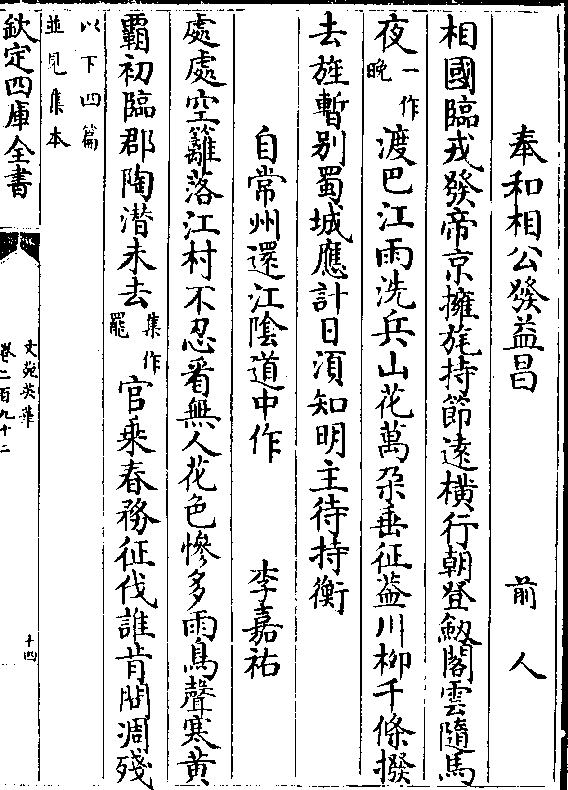 奉和相公發益昌　前人
相國臨戎發帝京擁旄持節遠橫行朝登劔閣雲隨馬
夜一作晚渡巴江雨洗兵山花萬朶垂征葢川柳千條撥
去旌暫别蜀城應計日湏知明主待持衡
自常州還江陰道中作　李嘉祐
處處空籬落江村不忍看無人花色慘多雨鳥聲寒黄
覇初臨郡陶潛未去集作罷官乗春務征伐誰肯問凋殘
以下四篇並見集本
欽定四庫全書
文苑英華
卷二百九十二
十四